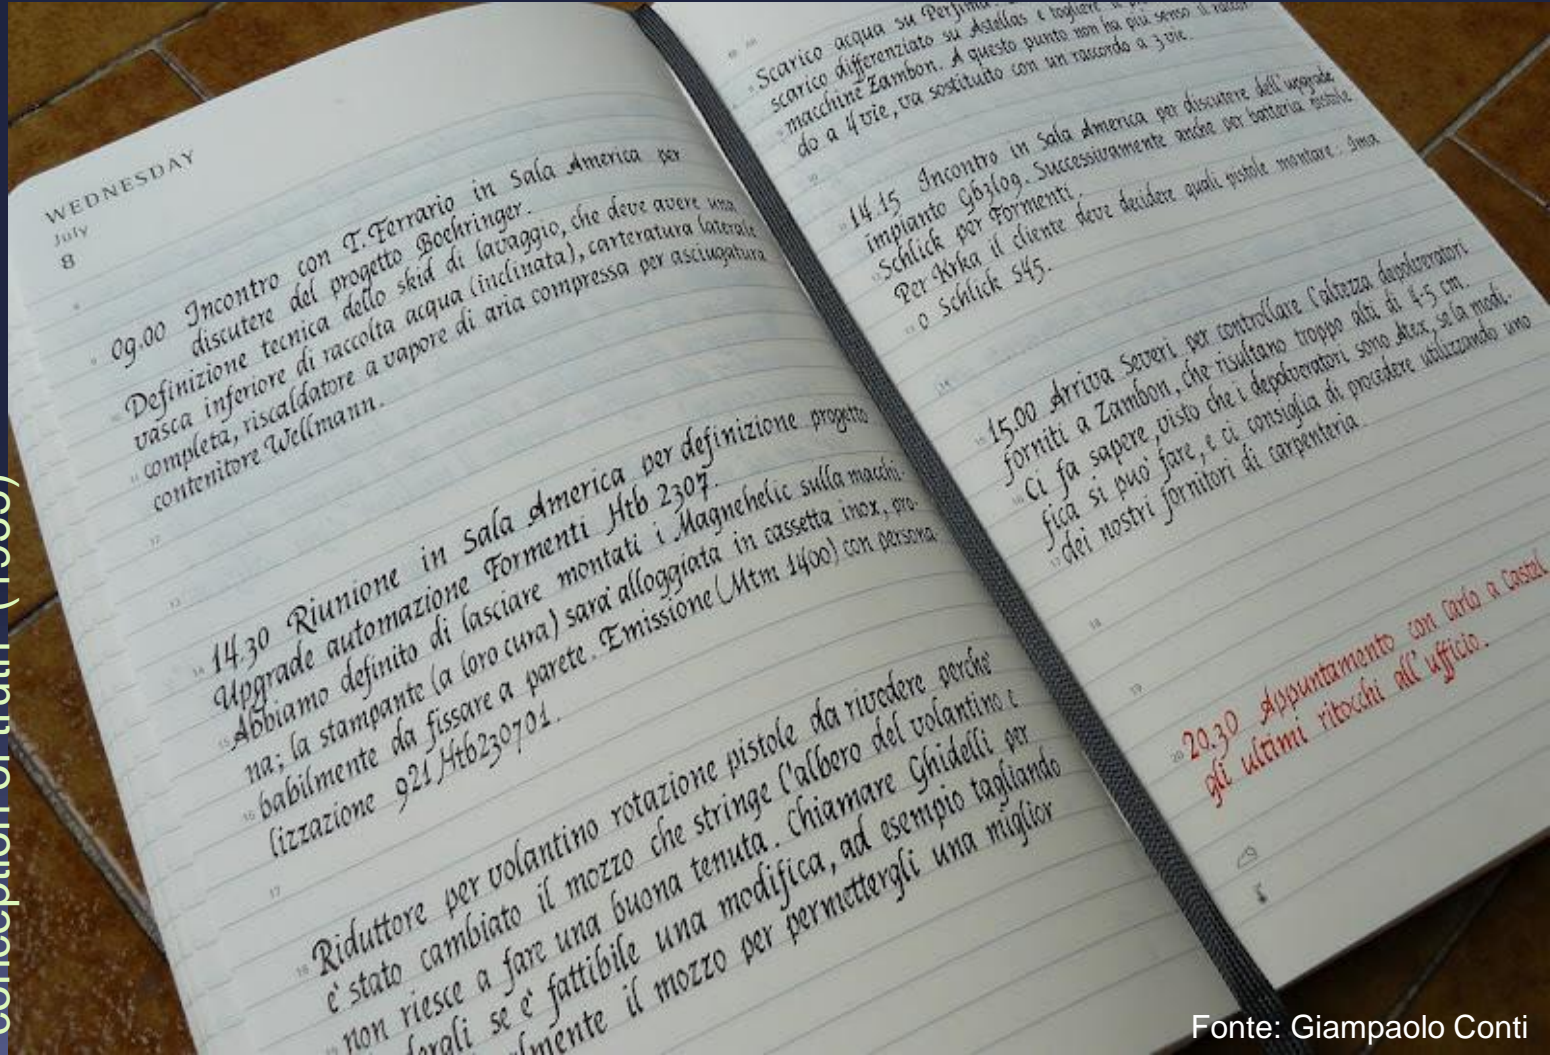 WEDNESDAY
July
8
09.00 Incontro con T. Ferrario in Sala America per
discutere del progetto Boehringer.
Definizione tecnica dello skid di lavaggio, che deve avere una
vasca inferiore di raccolta acqua (inclinata), carteratura laterale
completa, riscaldatore a vapore di aria compressa per asciugatura
contenitore Wellmann.
14.30 Riunione in Sala America per definizione progetto
Upgrade automazione Formenti Htb 2307.
Abbiamo definito di lasciare montati i Magnehelic sulla macchi-
na; la stampante (a loro cura) sara' alloggiata in cassetta inox, pro-
babilmente da fissare a parete. Emissione (Mtm 1400) con persona
lizzazione 921Htb230701.
Riduttore per volantino rotazione pistole da rivedere perche'
e' stato cambiato il mozzo che stringe l'albero del volantino e
non riesce a fare una buona tenuta. Chiamare Ghidelli per
se e' fattibile una modifica, ad esempio tagliando
il mozzo per permettergli una miglior
Scarico acqua su Perfima
scarico differenziato su Astellas e togliere il
macchine Zambon. A questo punto non ha più senso il raccor-
do a 4 vie, va sostituito con un raccordo a 3 vie.
14.15 Incontro in Sala America per discutere dell'upgrade
impianto G63109. Successivamente anche per batteria pistole
Schlick per Formenti.
Per Krka il cliente deve decidere quali pistole montare: Ima
o Schlick S45.
15.00 Arriva Severi per controllare l'altezza depolveratori
forniti a Zambon, che risultano troppo alti di 4-5 cm.
Ci fa sapere, visto che i depolveratori sono Atex, se la modi-
fica si può fare, e ci consiglia di procedere utilizzando uno
dei nostri fornitori di carpenteria.
20.30 Appuntamento con Carlo a Castel
gli ultimi ritocchi all'ufficio.
conception of truth (1933)
Fonte: Giampaolo Conti